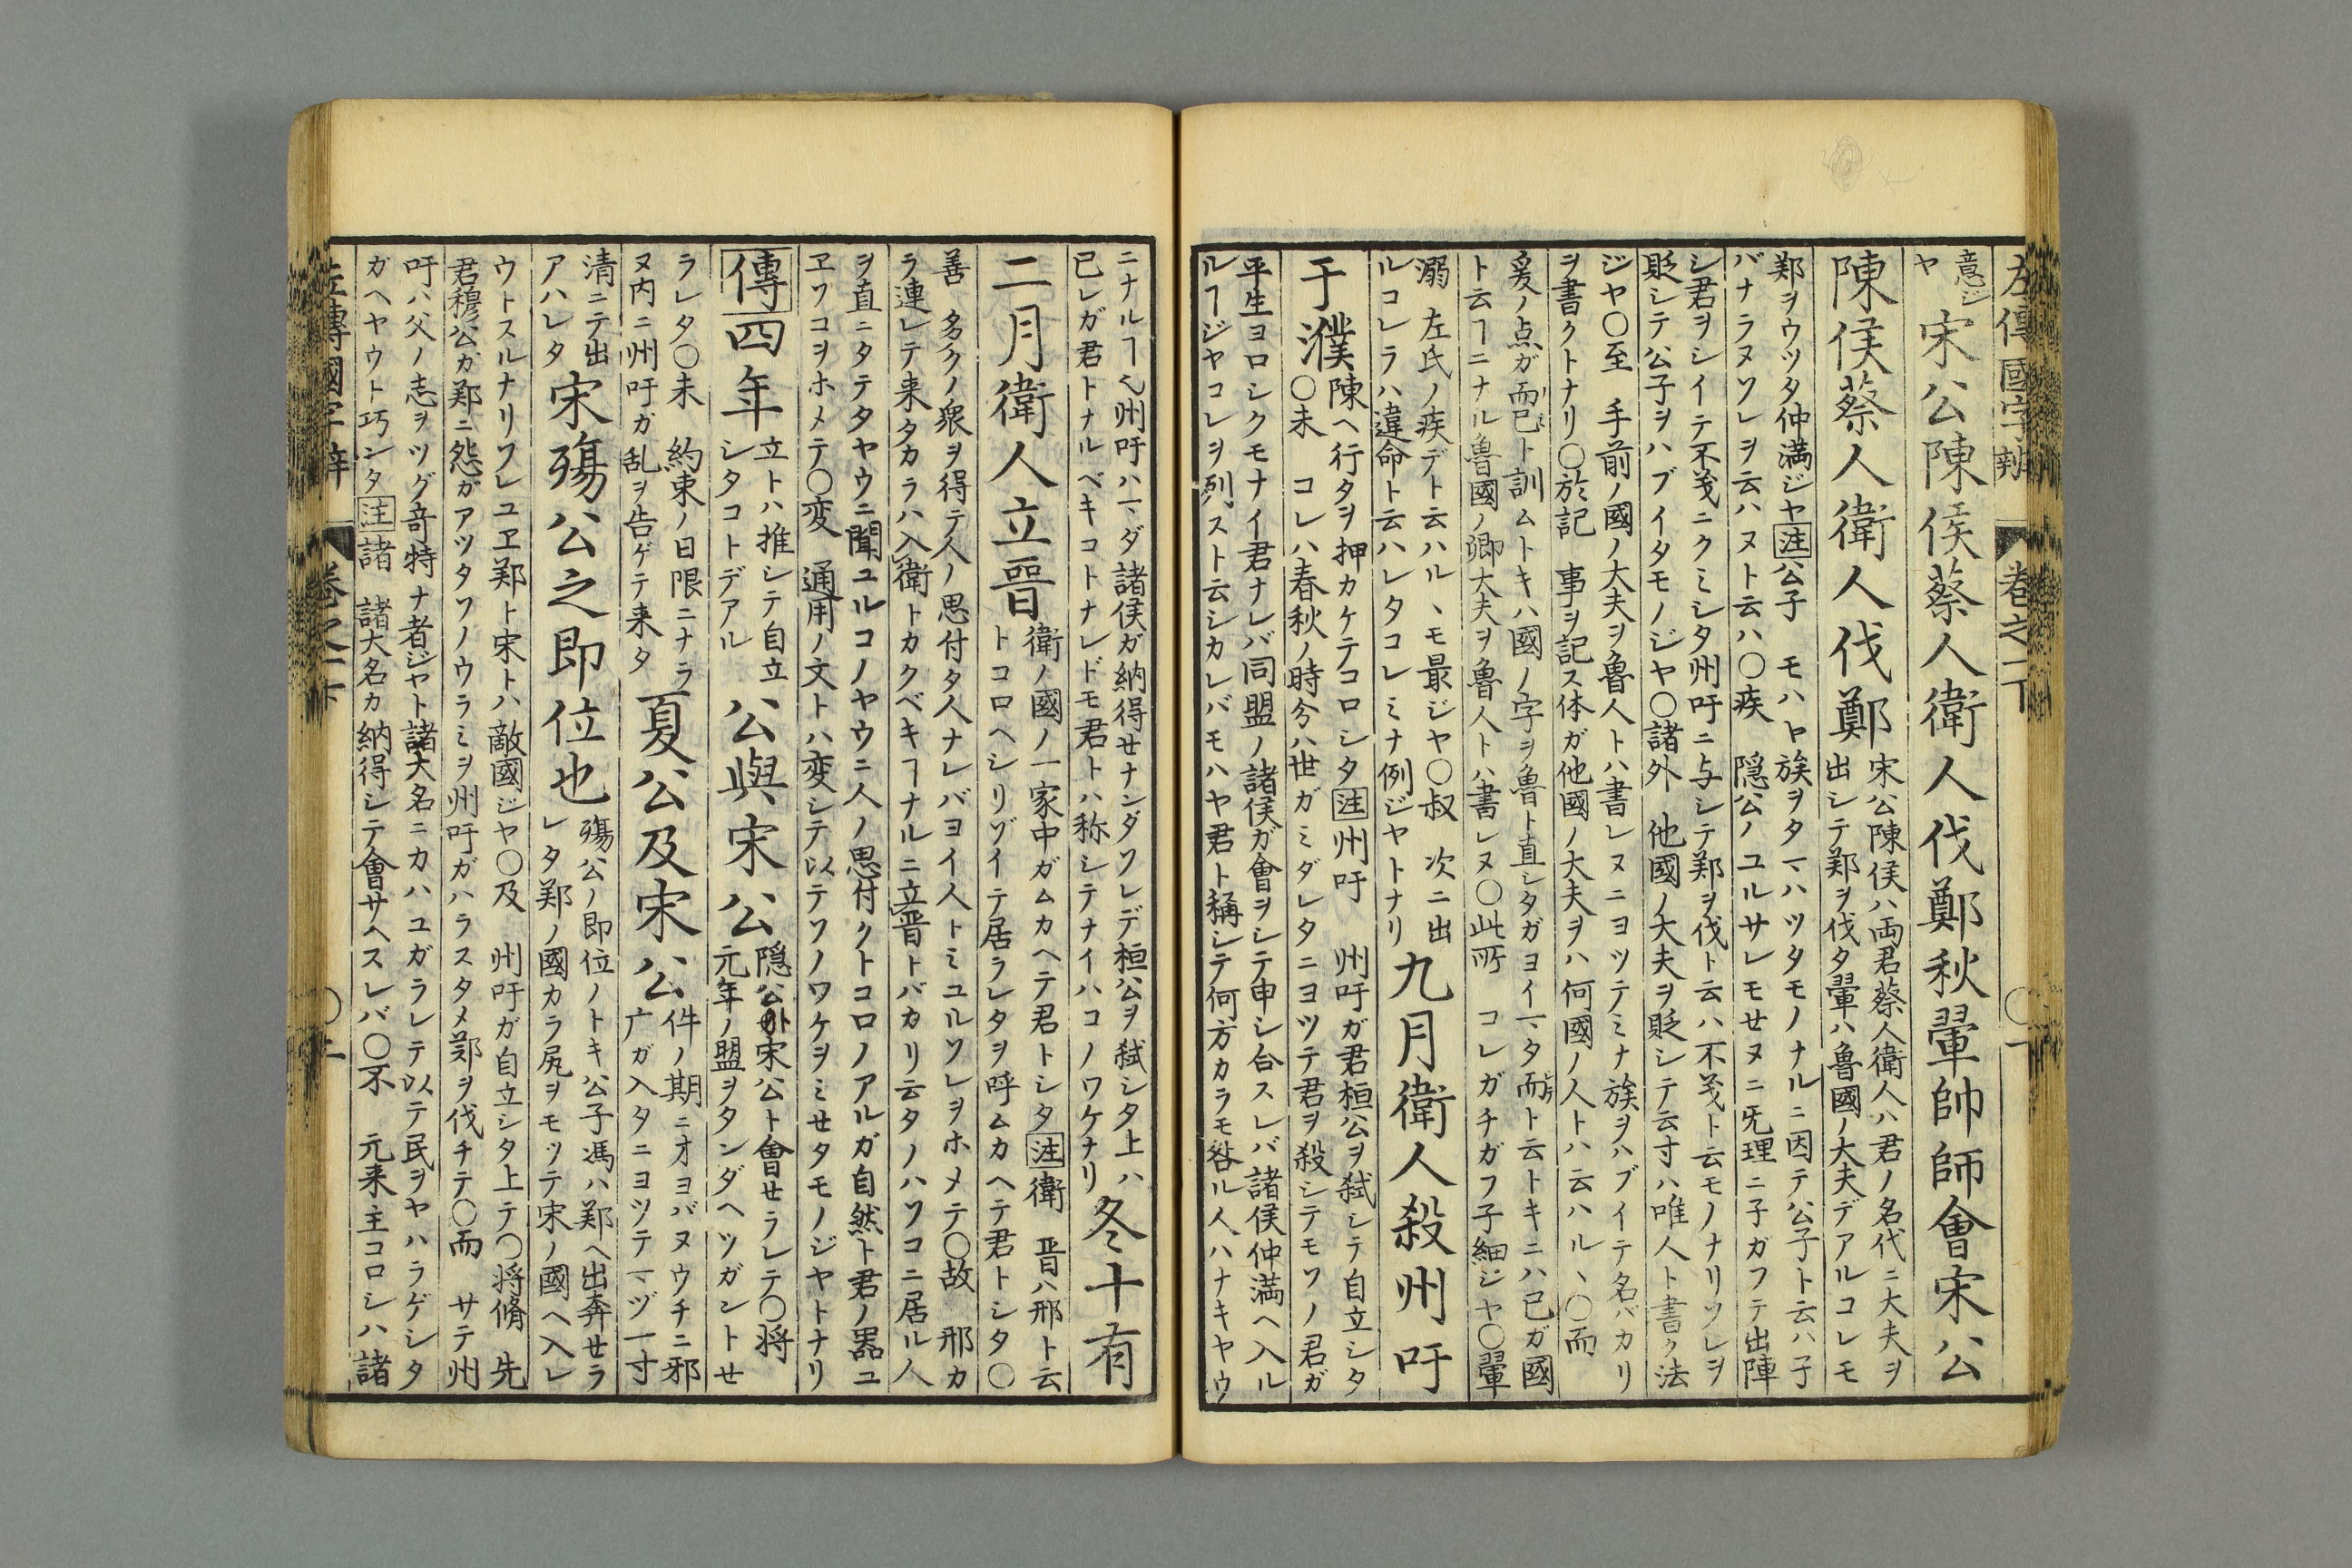 左傳國字辨 卷之一下 〇一
意ジ
ヤ
宋公陳侯蔡人衛人伐鄭秋翬帥師會宋公
陳侯蔡人衛人伐鄭
宋公陳侯ハ両君蔡人衛人ハ君ノ名代ニ大夫ヲ
出シテ鄭ヲ伐タ翬ハ魯國ノ大夫デアルコレモ
鄭ヲウツタ仲満ジヤ注公子 モハヤ族ヲタマハツタモノナルニ因テ公子ト云ハ子
バナラヌソレヲ云ハヌト云ハ〇疾 隠公ノユルサレモセヌニ旡理ニ子ガフテ出陣
シ君ヲシイテ不義ニクミシタ州吁ニ与シテ鄭ヲ伐ト云ハ不義ト云モノナリソレヲ
貶シテ公子ヲハブイタモノジヤ〇諸外 他國ノ大夫ヲ貶シテ云寸ハ唯人ト書ク法
ジヤ〇至 手前ノ國ノ大夫ヲ魯人トハ書レヌニヨツテミナ族ヲハブイテ名バカリ
ヲ書クトナリ〇於記 事ヲ記ス体ガ他國ノ大夫ヲハ何國ノ人トハ云ハル、〇而
爰ノ点ガ而已ト訓ムトキハ國ノ字ヲ魯ト直シタガヨイマタ而ト云トキニハ已ガ國
ト云ヿニナル魯國ノ卿大夫ヲ魯人トハ書レヌ〇此所 コレガチガフ子細ジヤ〇翬
溺 左氏ノ疾デト云ハル、モ最ジヤ〇叔 次ニ出
ルコレラハ違命ト云ハレタコレミナ例ジヤトナリ
九月衛人殺州吁
于濮
陳ヘ行タヲ押カケテコロシタ注州吁 州吁ガ君桓公ヲ弑シテ自立シタ
〇未 コレハ春秋ノ時分ハ世ガミダレタニヨツテ君ヲ殺シテモソノ君ガ
平生ヨロシクモナイ君ナレバ同盟ノ諸侯ガ會ヲシテ申シ合スレバ諸侯仲満ヘ入ル
ルヿジヤコレヲ列スト云シカレバモハヤ君ト稱シテ何方カラモ咎ル人ハナキヤウ
ニナルヿ也州吁ハマダ諸侯ガ納得セナンダソレデ桓公ヲ弑シタ上ハ
已レガ君トナルベキコトナレドモ君トハ称シテナイハコノワケナリ
冬十有
二月衛人立晉
衛ノ國ノ一家中ガムカヘテ君トシタ注衛 晋ハ邢ト云
トコロヘシリゾイテ居ラレタヲ呼ムカヘテ君トシタ〇
善 多クノ衆ヲ得テ人ノ思付タ人ナレバヨイ人トミユルソレヲホメテ〇故 邢カ
ラ連レテ来タカラハ入衛トカクベキヿナルニ立晋トバカリ云タノハソコニ居ル人
ヲ直ニタテタヤウニ聞ユルコノヤウニ人ノ思付クトコロノアルガ自然ト君ノ器ユ
ヱソコヲホメテ〇変 通用ノ文トハ変シテ以テソノワケヲミセタモノジヤトナリ
傳四年
立トハ推シテ自立
シタコトデアル
公與宋公
隠公カ宋公ト會セラレテ〇将
元年ノ盟ヲタンダヘツガントせ
ラレタ〇未 約束ノ日限ニナラ
ヌ内ニ州吁ガ乱ヲ告ゲテ来タ
夏公及宋公
件ノ期ニオヨバヌウチニ邪
广ガ入タニヨツテマヅ一寸
清ニテ出
アハレタ
宋殤公之即位也
殤公ノ即位ノトキ公子馮ハ鄭ヘ出奔セラ
レタ鄭ノ國カラ尻ヲモツテ宋ノ國ヘ入レ
ウトスルナリソレユヱ鄭ト宋トハ敵國ジヤ〇及 州吁ガ自立シタ上テ〇将脩 先
君穆公ガ鄭ニ怨ガアツタソノウラミヲ州吁ガハラスタメ鄭ヲ伐チテ〇而 サテ州
吁ハ父ノ志ヲツグ奇特ナ者ジヤト諸大名ニカハユガラレテ以テ民ヲヤハラゲシタ
ガヘヤウト巧ンタ注諸 諸大名カ納得シテ會サヘスレバ〇不 元来主コロシハ諸
左傳國字辨 卷之一下